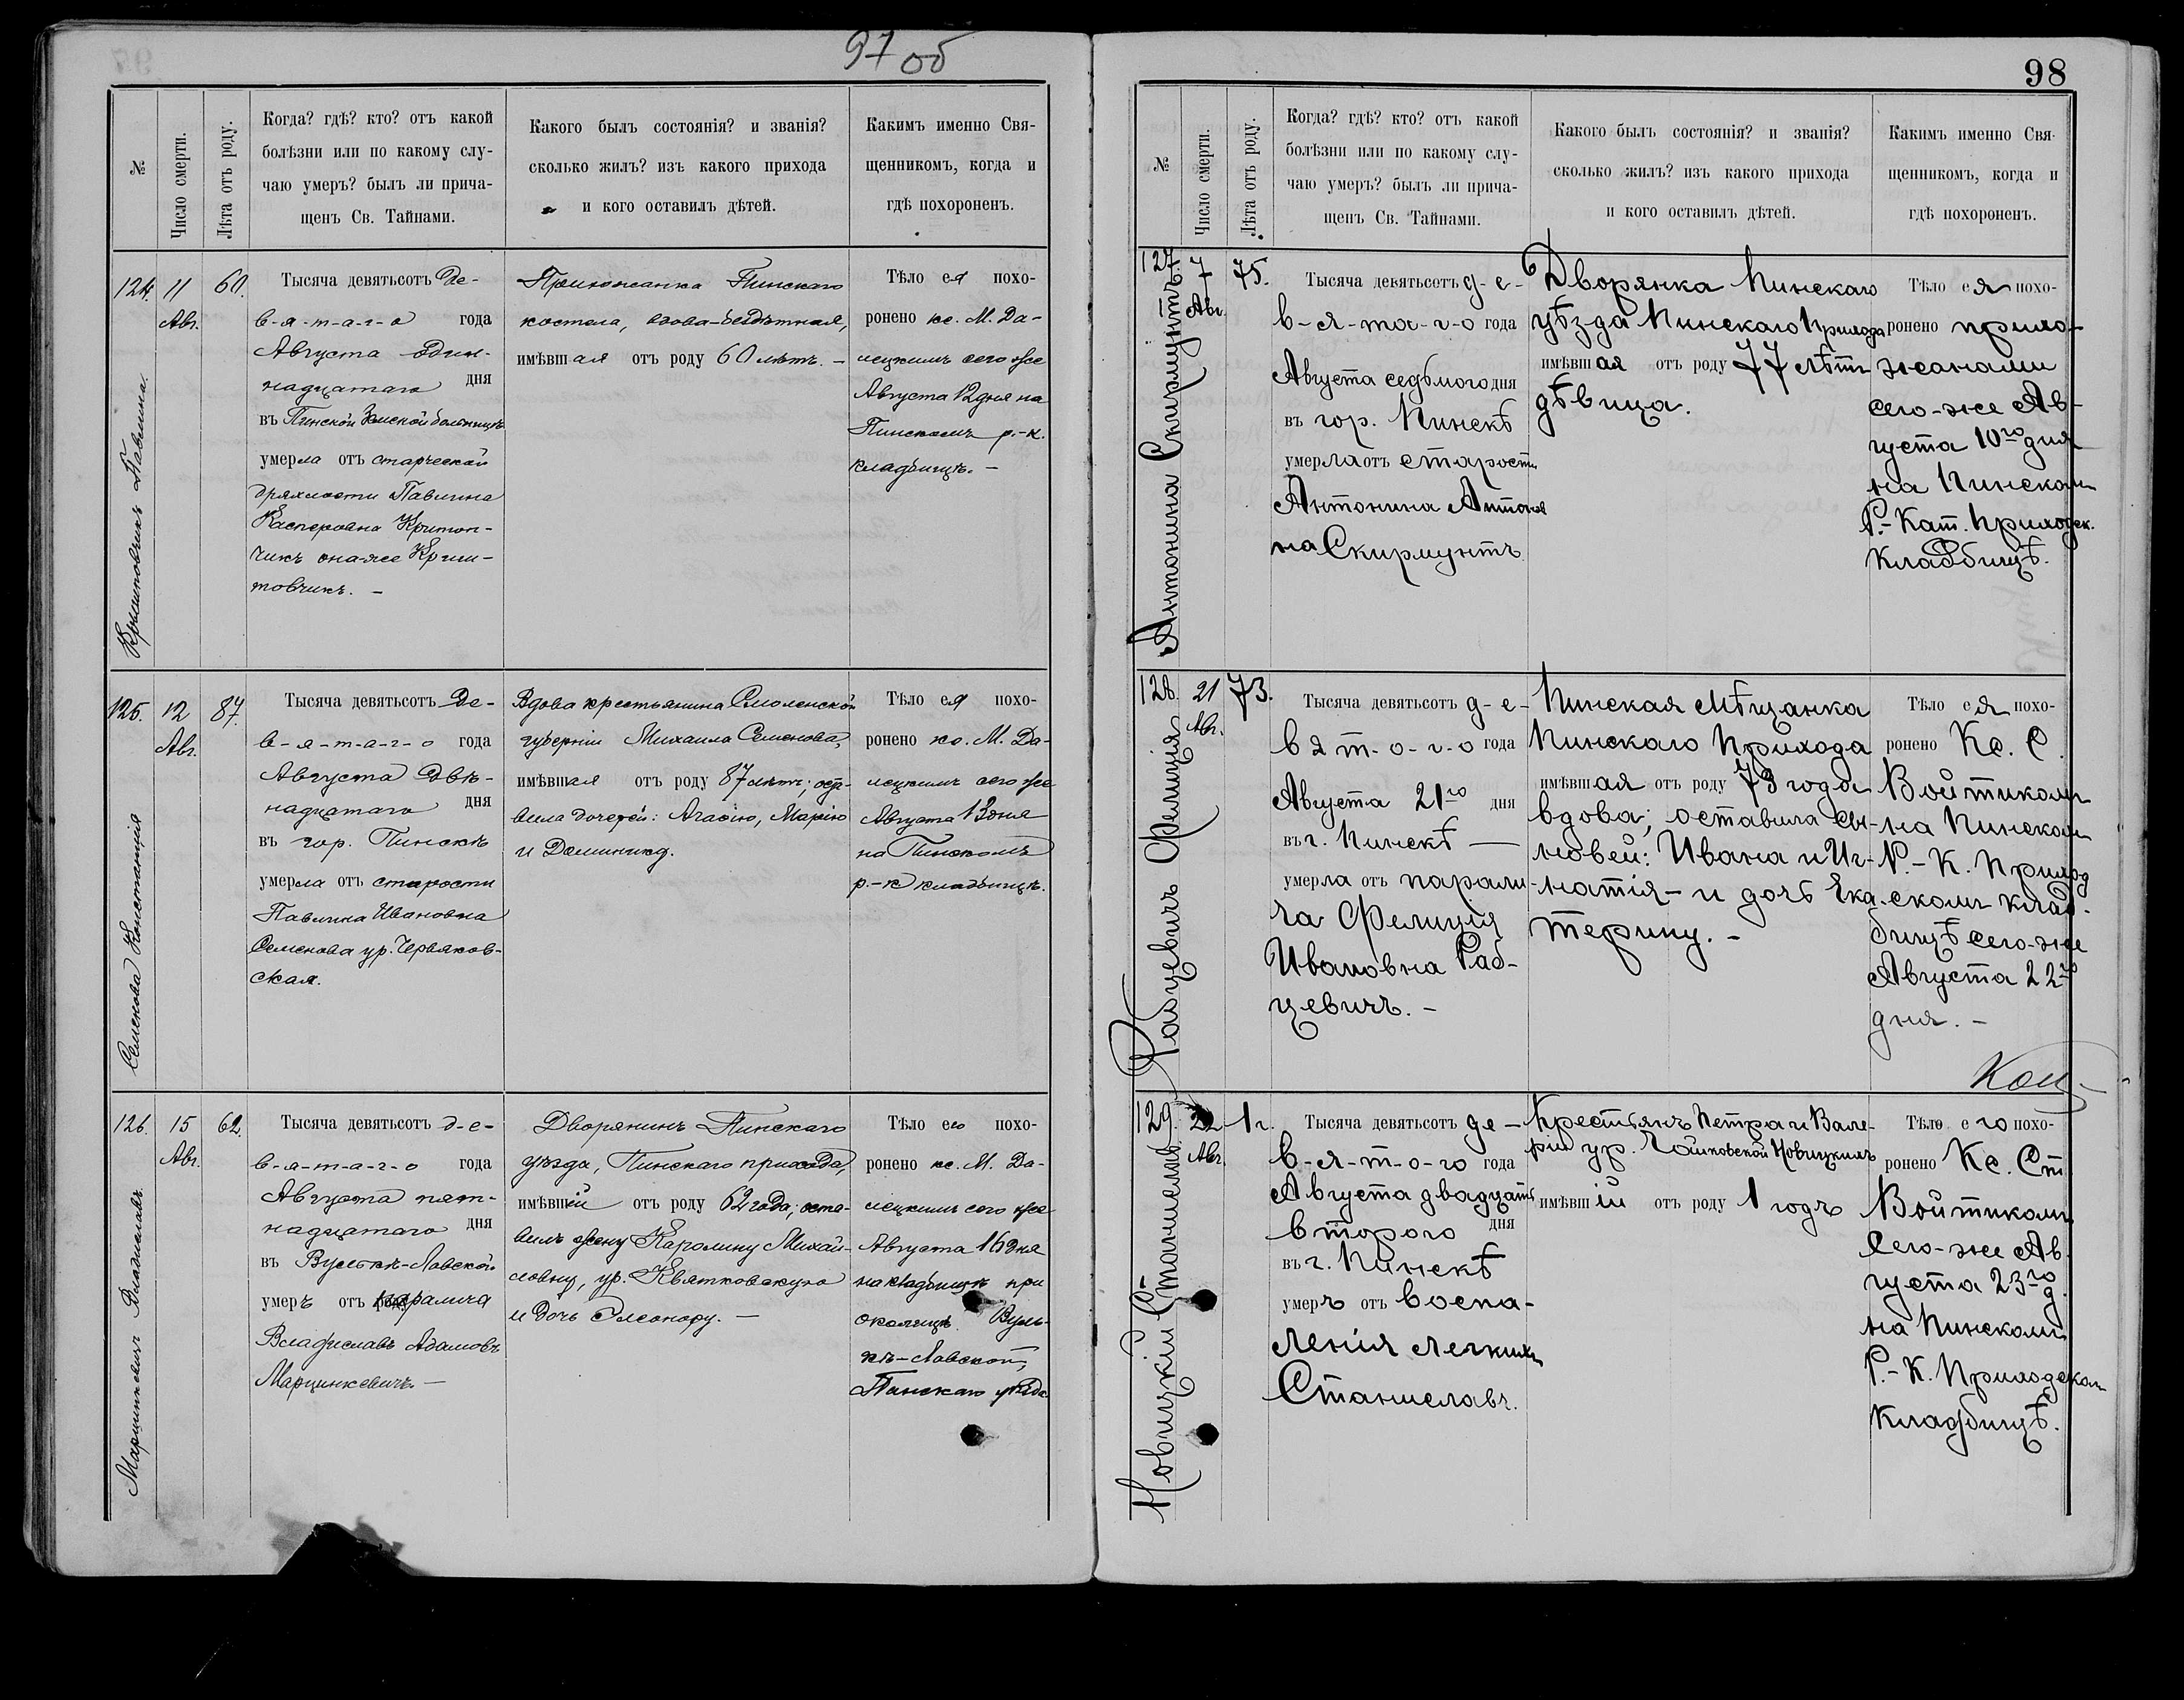 97 об
№
Число смерти.
Лѣта отъ роду.
Когда? гдѣ? кто? отъ какой
болѣзни или по какому слу-
чаю умеръ? былъ ли прича-
щенъ Св. Тайнами.
Какого былъ состоянія? и званія?
сколько жилъ? изъ какого прихода
и кого оставилъ дѣтей.
Какимъ именно Свя-
щенникомъ, когда и
гдѣ похороненъ.
124.
11
Авг.
60.
Криштовчикъ Павлина.
Тысяча девятьсотъ де-
в-я-т-а-г-о года
Августа один-
надцатаго дня
въ Пинской Земской больницѣ
умерла отъ старческой
дряхлости Павлина
Касперовна Критов-
чикъ она-же Криш-
товчикъ. -
Прихожанка Пинскаго
костела, вдова-бездѣтная,
имѣвшая отъ роду 60 лѣтъ. -
Тѣло ея похо-
ронено кс. М. Да-
лецкимъ сего же
Августа 12 дня на
Пинскомъ р.-к.
кладбищѣ. -
125.
12
Авг.
87.
Семенова Констанція
Тысяча девятьсотъ де-
в-я-т-а-г-о года
Августа двѣ-
надцатаго дня
въ гор. Пинскѣ
умерла отъ старости
Павлина Ивановна
Семенова ур. Червяков-
ская.
Вдова крестьянина Смоленской
губерніи Михаила Семенова,
имѣвшая отъ роду 87 лѣтъ; оста-
вила дочерей: Агафію, Марію
и Доминику.
Тѣло ея похо-
ронено кс. М. Да-
лецкимъ сего же
Августа 13 дня
на Пинскомъ
р.-к кладбищѣ.
126.
15
Авг.
62.
Марцинкевичъ Владиславъ.
Тысяча девятьсотъ д-е-
в-я-т-а-г-о года
Августа пят-
надцатаго дня
въ Вулькѣ-Лавской
умеръ отъ паралича
Владиславъ Адамовъ
Марцинкевичъ. -
Дворянинъ Пинскаго
уѣзда, Пинскаго прихода,
имѣвшій отъ роду 62 года; оста-
вилъ жену Каролину Михай-
ловну, ур. Квятковскую
и дочь Элеонору. -
Тѣло его похо-
ронено кс. М. Да-
лецкимъ сего же
Августа 16 дня
на кладбищѣ при
околицѣ Вуль-
кѣ-Лавской,
Пинскаго уѣзда.
98
№
Число смерти.
Лѣта отъ роду.
Когда? гдѣ? кто? отъ какой
болѣзни или по какому слу-
чаю умеръ? былъ ли прича-
щенъ Св. Тайнами.
Какого былъ состоянія? и званія?
сколько жилъ? изъ какого прихода
и кого оставилъ дѣтей.
Какимъ именно Свя-
щенникомъ, когда и
гдѣ похороненъ.
127.
7
Авг.
75.
Антонина Скирмунтъ
Тысяча девятьсотъ д-е-
в-я-та-г-о года
Августа седьмого дня
въ гор. Пинскѣ
умерла отъ старости
Антонина Антонов
на Скирмунтъ
Дворянка Пинскаго
уѣзда Пинскаго прихода
имѣвшая отъ роду 77 лѣтъ
дѣвица.
Тѣло ея похо-
ронено прихо-
жанами
сего-же Ав-
густа 10го дня
на Пинском
Р.-Кат. приходск.
кладбищѣ.
128.
21
Авг.
73.
Рабцевичъ Фелиція
Тысяча девятьсотъ д-е-
вят-о-г-о года
Августа 21го дня
въ г. Пинскѣ —
умерла отъ парали-
ча Фелиція
Ивановна Раб-
цевичъ. -
Пинская мѣщанка
Пинскаго прихода
имѣвшая отъ роду 73 года
вдова; оставила сы-
новей: Ивана и Иг-
натія - и дочь Ека-
терину. -
Тѣло ея похо-
ронено Кс. С.
Войтиком
на Пинском
Р.-К. Приход
ском клад-
бищѣ сего-же
Августа 22го
дня. -
129.
22
Авг.
1 г.
Новицкій Станиславъ
Тысяча девятьсотъ де-
в-я-т-о-го года
Августа двадцать
второго дня
въ г. Пинскѣ
умеръ отъ воспа-
ленія легкихъ
Станиславъ.
Крестьянъ Петра и Вале-
ріи ур. Новицкихъ
имѣвшій отъ роду 1 годъ
Тѣло его похо-
ронено Кс. Ст.
Войтиком
сего-же Ав
густа 23го д.
на Пинском
Р.-К. Приходском
кладбищѣ.